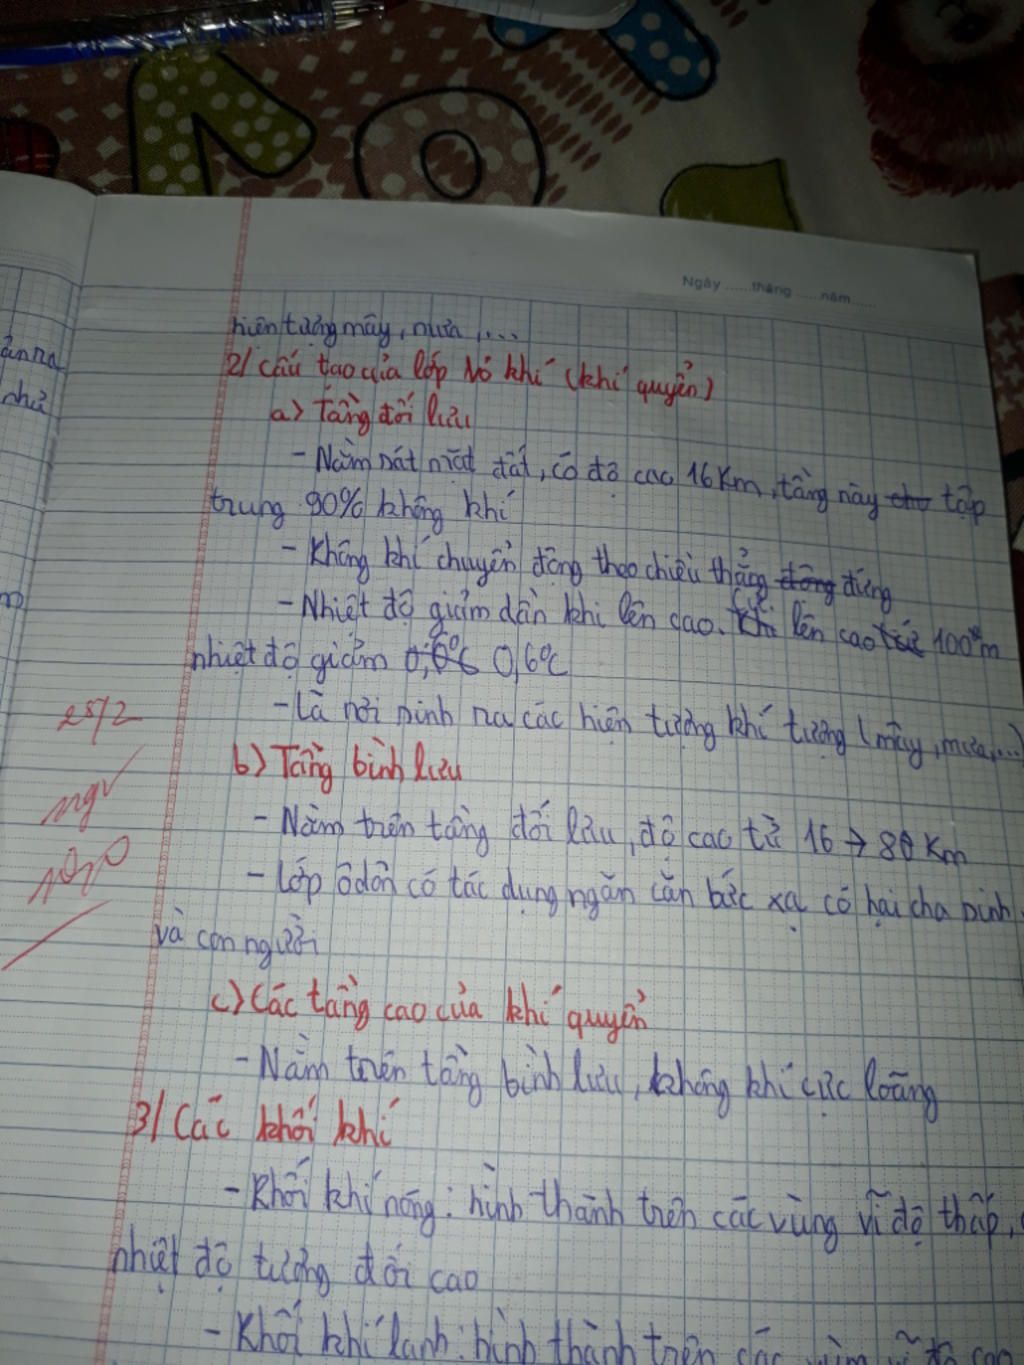 Ngày ......tháng ......năm ......
hiện tượng mây, mưa, ...
2/ Cấu tạo của lớp vỏ khí (khí quyển)
a) Tầng đối lưu
- Nằm sát mặt đất, có độ cao 16 Km, tầng này tập
trung 90% không khí
- Không khí chuyển động theo chiều thẳng đứng
- Nhiệt độ giảm dần khi lên cao. Cứ lên cao 100m
nhiệt độ giảm 0,6°C
- Là nơi sinh ra các hiện tượng khí tượng (mây, mưa,...)
b) Tầng bình lưu
- Nằm trên tầng đối lưu, độ cao từ 16 → 80 Km
- Lớp ôdôn có tác dụng ngăn cản bức xạ có hại cho sinh
và con người
c) Các tầng cao của khí quyển
- Nằm trên tầng bình lưu, không khí cực loãng
3/ Các khối khí
- Khối khí nóng: hình thành trên các vùng vĩ độ thấp,
nhiệt độ tương đối cao
- Khối khí lạnh: hình thành trên các
25/2